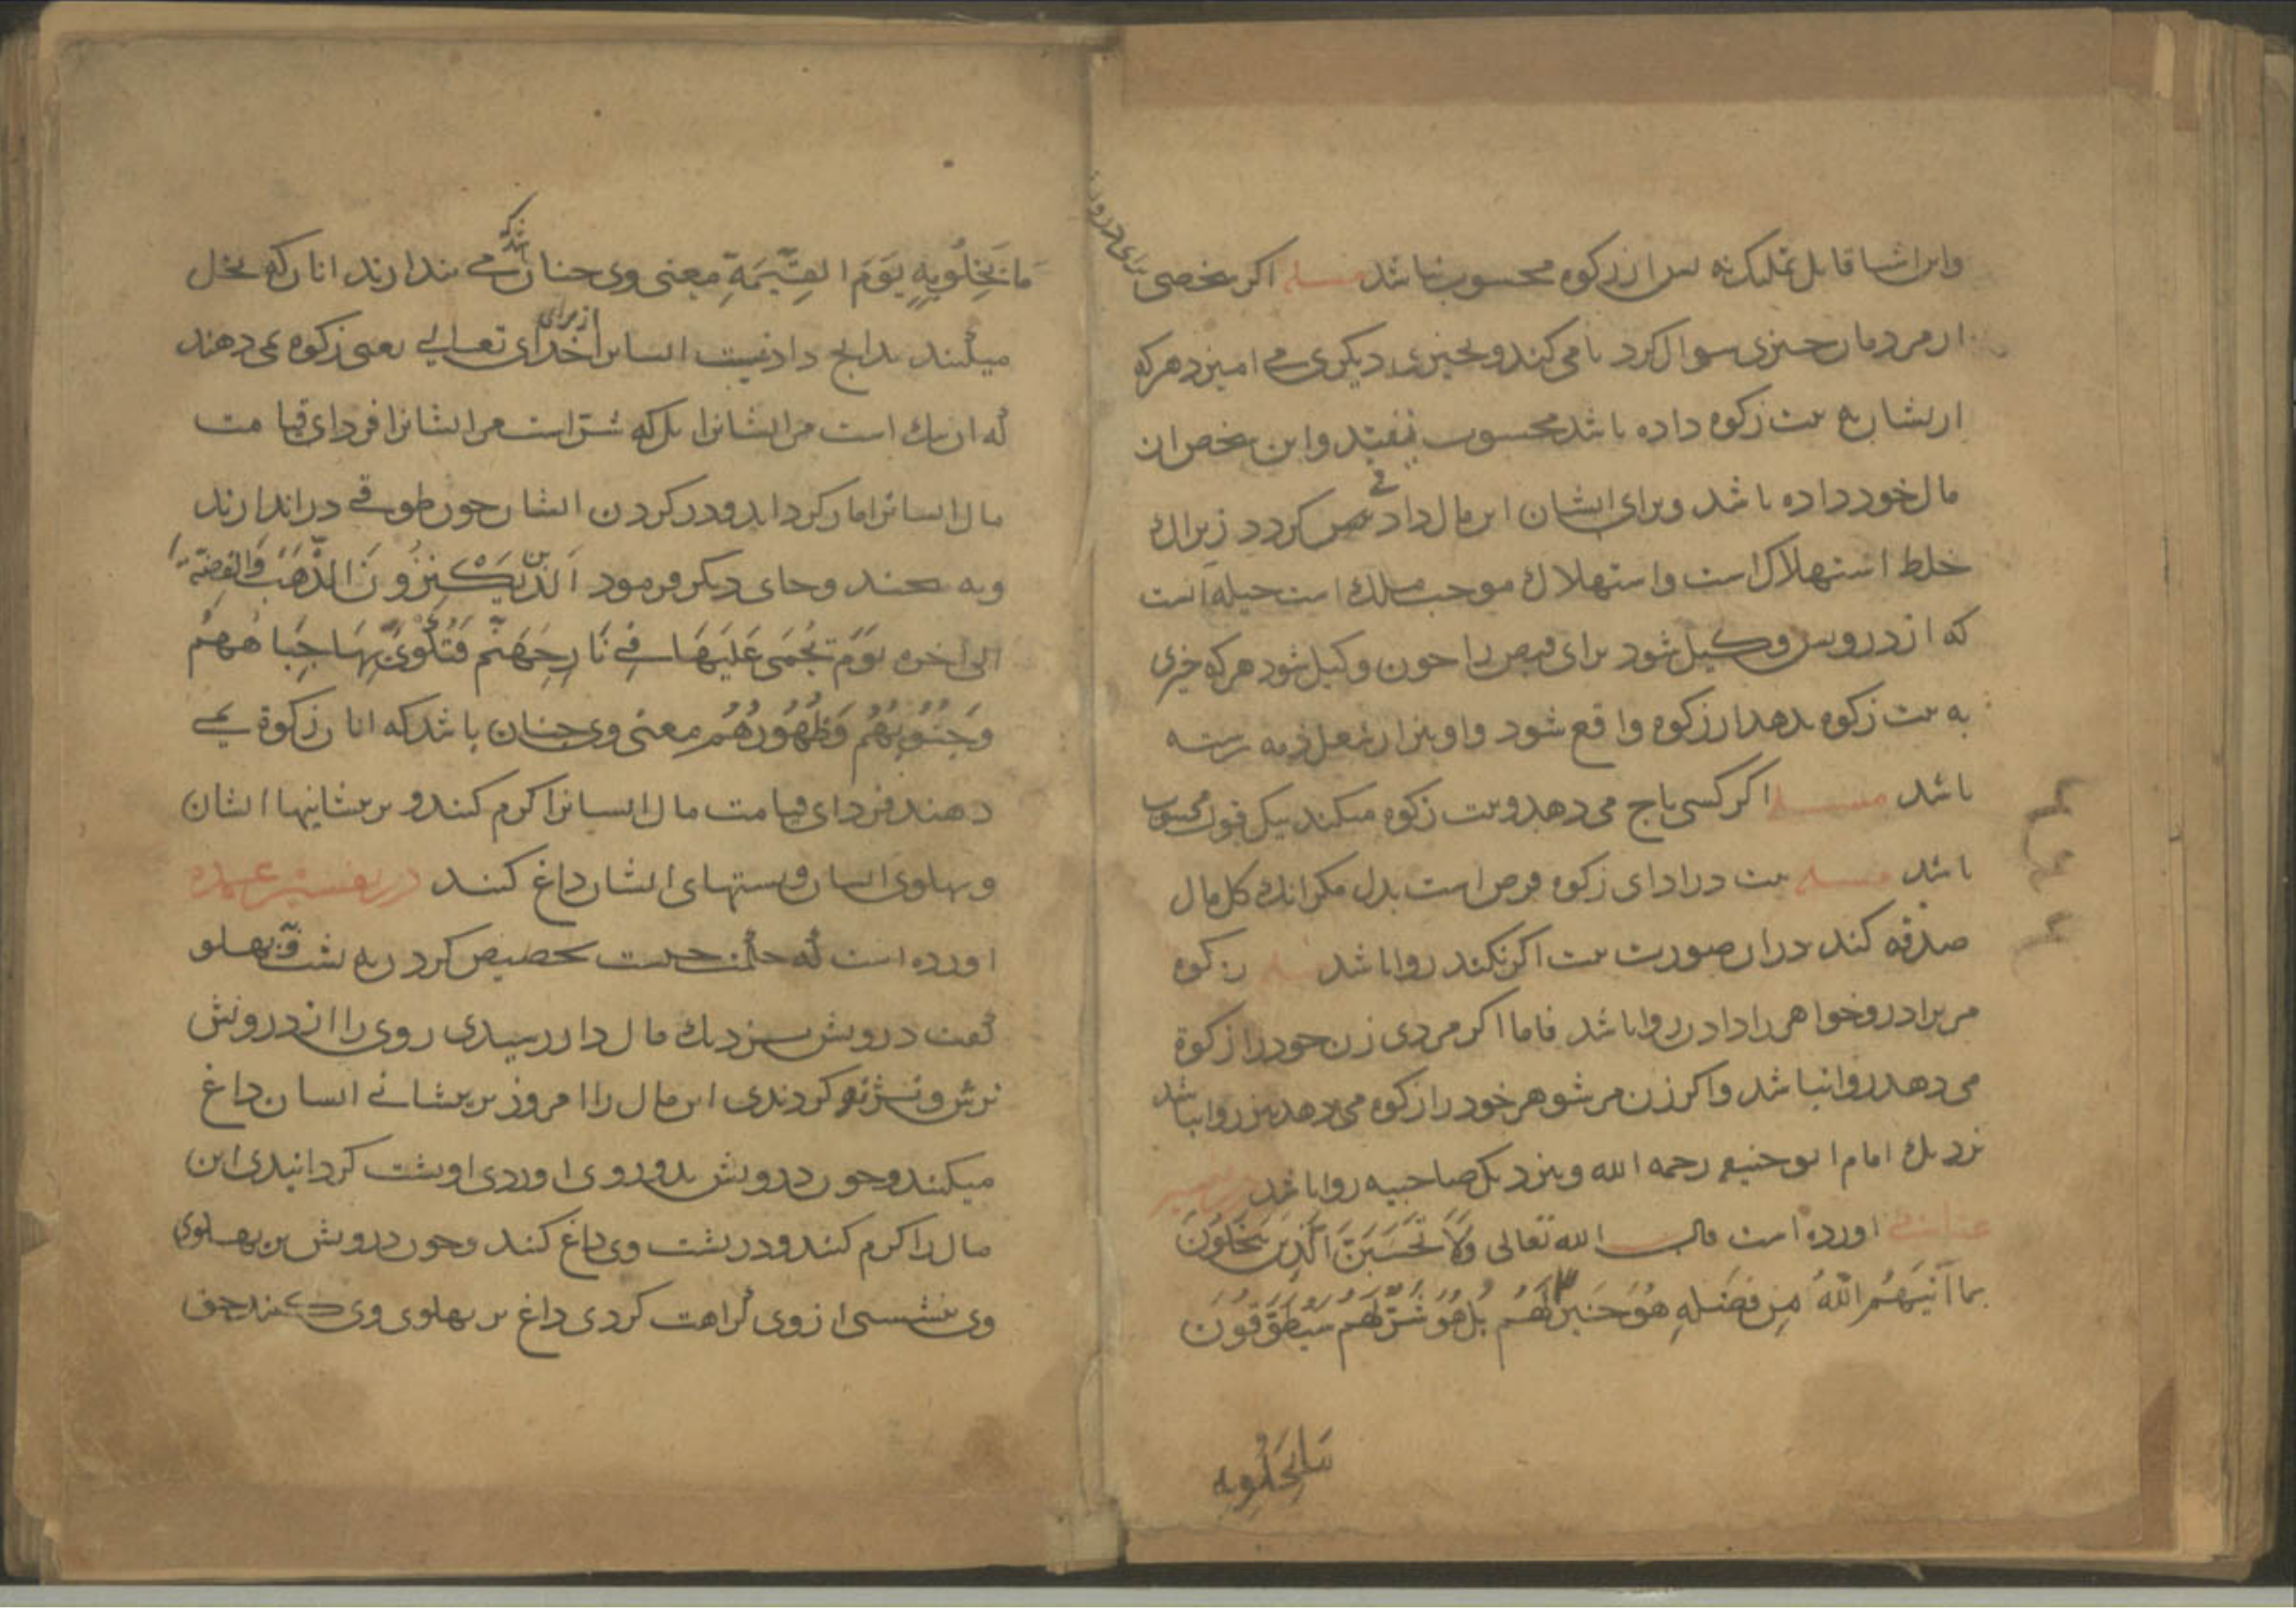 واین اشیا قابل تملیک نه پس از زکوه محسوب نباشد مسله اکر شخصی برای درویشان
از مردمان چیزی سوال کرد یا می کند و بچیزی دیکری می امیزد هرکه
ازیشان به نیت زکوه داده باشد محسوب نیفتد واین شخص از
مال خود داده باشد وبرای ایشان این مال دادنی کردد زیراک
خلط استهلاک است واستهلاک موجب ملک است حیله انست
که از درویش وکیل شود برای قبض را چون وکیل شود هرکه چیزی
به نیت زکوه بدهد از زکوه واقع شود واو نیز ازین فعل ذمه رسته
باشد مسله اکر کسی باج می دهد ونیت زکوه میکند بیک قول محسوب
باشد مسله نیت در ادای زکوه فرض است بدل مکر انک کل مال
صدقه کند دران صورت نیت اکر نکند روا باشد مسله زکوه
مر برادر وخواهر را دادن روا باشد فاما اکر مردی زن خود را زکوة
می دهد روا نباشد واکر زن مر شوهر خود را زکوه می دهد نیز روا نباشد
نزدیک امام ابو حنیفه رحمه الله وبنزدیک صاحبیه روا باشد در تفسیر
اورده است قال الله تعالی وَلَا تَحْسَبَنَّ الَّذِينَ يَبْخَلُونَ
بما آتیهُمُ اللهُ مِن فَضْلِهِ هُوَ خَیرٌ لَهُم بَلْ هُوَ شَرٌّ لَهُم سَيُطَوَّقُونَ
مابَخِلُوبه
مَا بَخِلُوبِهِ يَوْمَ القِيٰمَةِ معنی وی چنان باشد که می پندارند انان که بخل
میکنند بدانچ داد نیست ایشانرا از برای خدای تعالی یعنی زکوه نمی دهند
که ان نیک است مر ایشانرا بل که شر است مر ایشانرا فردای قیامت
مال ایشانرا مار کرداند ودر کردن ایشان چون طوقی در اندازند
وبه پیچند وجای دیکر فرمود اَلَّذِينَ يَكْنِزُونَ الذَّهَبَ وَالفِضَّةَ
الی اخره یَوْمَ یُحْمَی عَلَیْهَا فِی نَارِ جَهَنَّمَ فَتُکْوَی بِهَا جِبَاهُهُمْ
وَجُنُوبُهُم وَظُهُورُهُم معنی وی چنان باشد که انان زکوة نمی
دهند فردای قیامت مال ایشانرا کرم کنند وبر پیشانیها ایشان
وپهلوی ایشان وپشتهای ایشان داغ کنند در تفسیر عمده
اورده است که حکمت چیست تخصیص کردن به پشت وپهلو
کفت درویش بنزدیک مال دار رسیدی روی را از درویش
ترش کردندی این مال را امروز بر پیشانی ایشان داغ
میکنند وچون درویش بدو روی اوردی او پشت کردانیدی این
مال را کرم کنند ودر پشت وی داغ کنند وچون درویش بر پهلوی
وی نشستی از وی کراهت کردی داغ بر پهلوی وی کنند حق